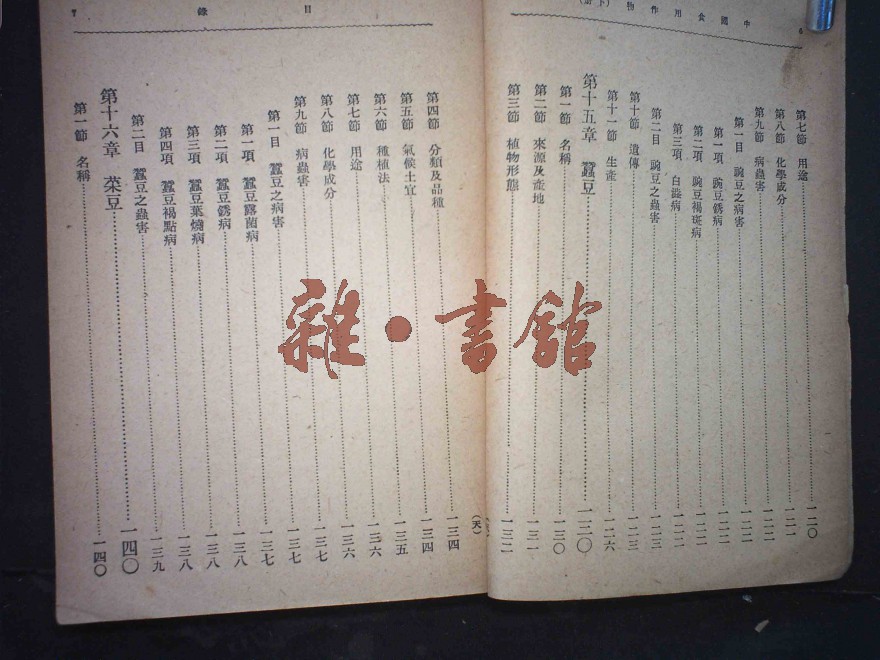 中國食用作物(下冊)
第七節 用途 一二〇
第八節 化學成分 一二一
第九節 病蟲害 一二二
第一目 豌豆之病害 一二二
第一項 豌豆銹病 一二二
第二項 豌豆褐斑病 一二二
第三項 白澁病 一二二
第二目 豌豆之蟲害 一二三
第十節 遺傳
第十一節 生產 一二六
第十五章 蠶豆 一三〇
第一節 名稱 一三〇
第二節 來源及產地 一三一
第三節 植物形態 一三二
目錄 7
(天)
第四節 分類及品種 一三四
第五節 氣候土宜 一三四
第六節 種植法 一三五
第七節 用途 一三六
第八節 化學成分 一三六
第九節 病蟲害 一三七
第一目 蠶豆之病害 一三七
第一項 蠶豆露菌病 一三七
第二項 蠶豆銹病 一三八
第三項 蠶豆葉燒病 一三八
第四項 蠶豆褐點病 一三八
第二目 蠶豆之蟲害 一三九
第十六章 菜豆 一四〇
第一節 名稱 一四〇
雜·書館